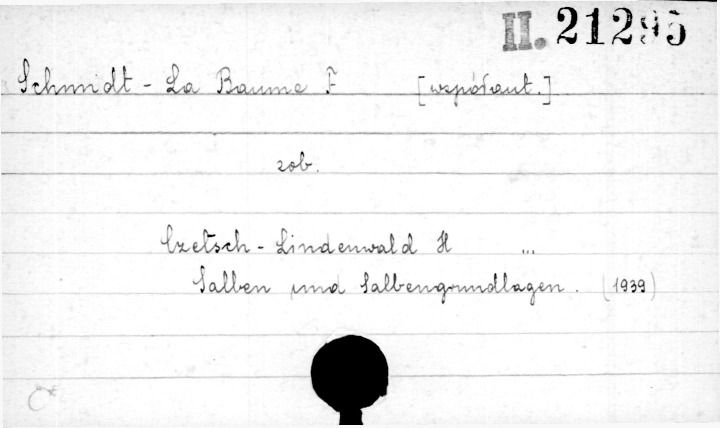 II. 21295
Schmidt - La Baume F [współaut.]
zob.
Czetsch - Lindenwald H „
Salben und Salbengrundlagen. (1939)